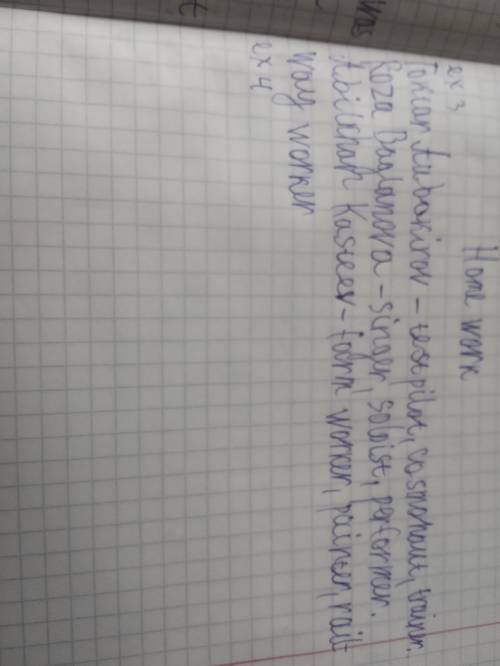 Home work
ex 3
Toktar Aubakirov - test pilot, cosmonaut, trainer.
Roza Baglanova - singer, soloist, performer.
Abilkhan Kasteev - farm worker, painter, rail-
way worker
ex 4